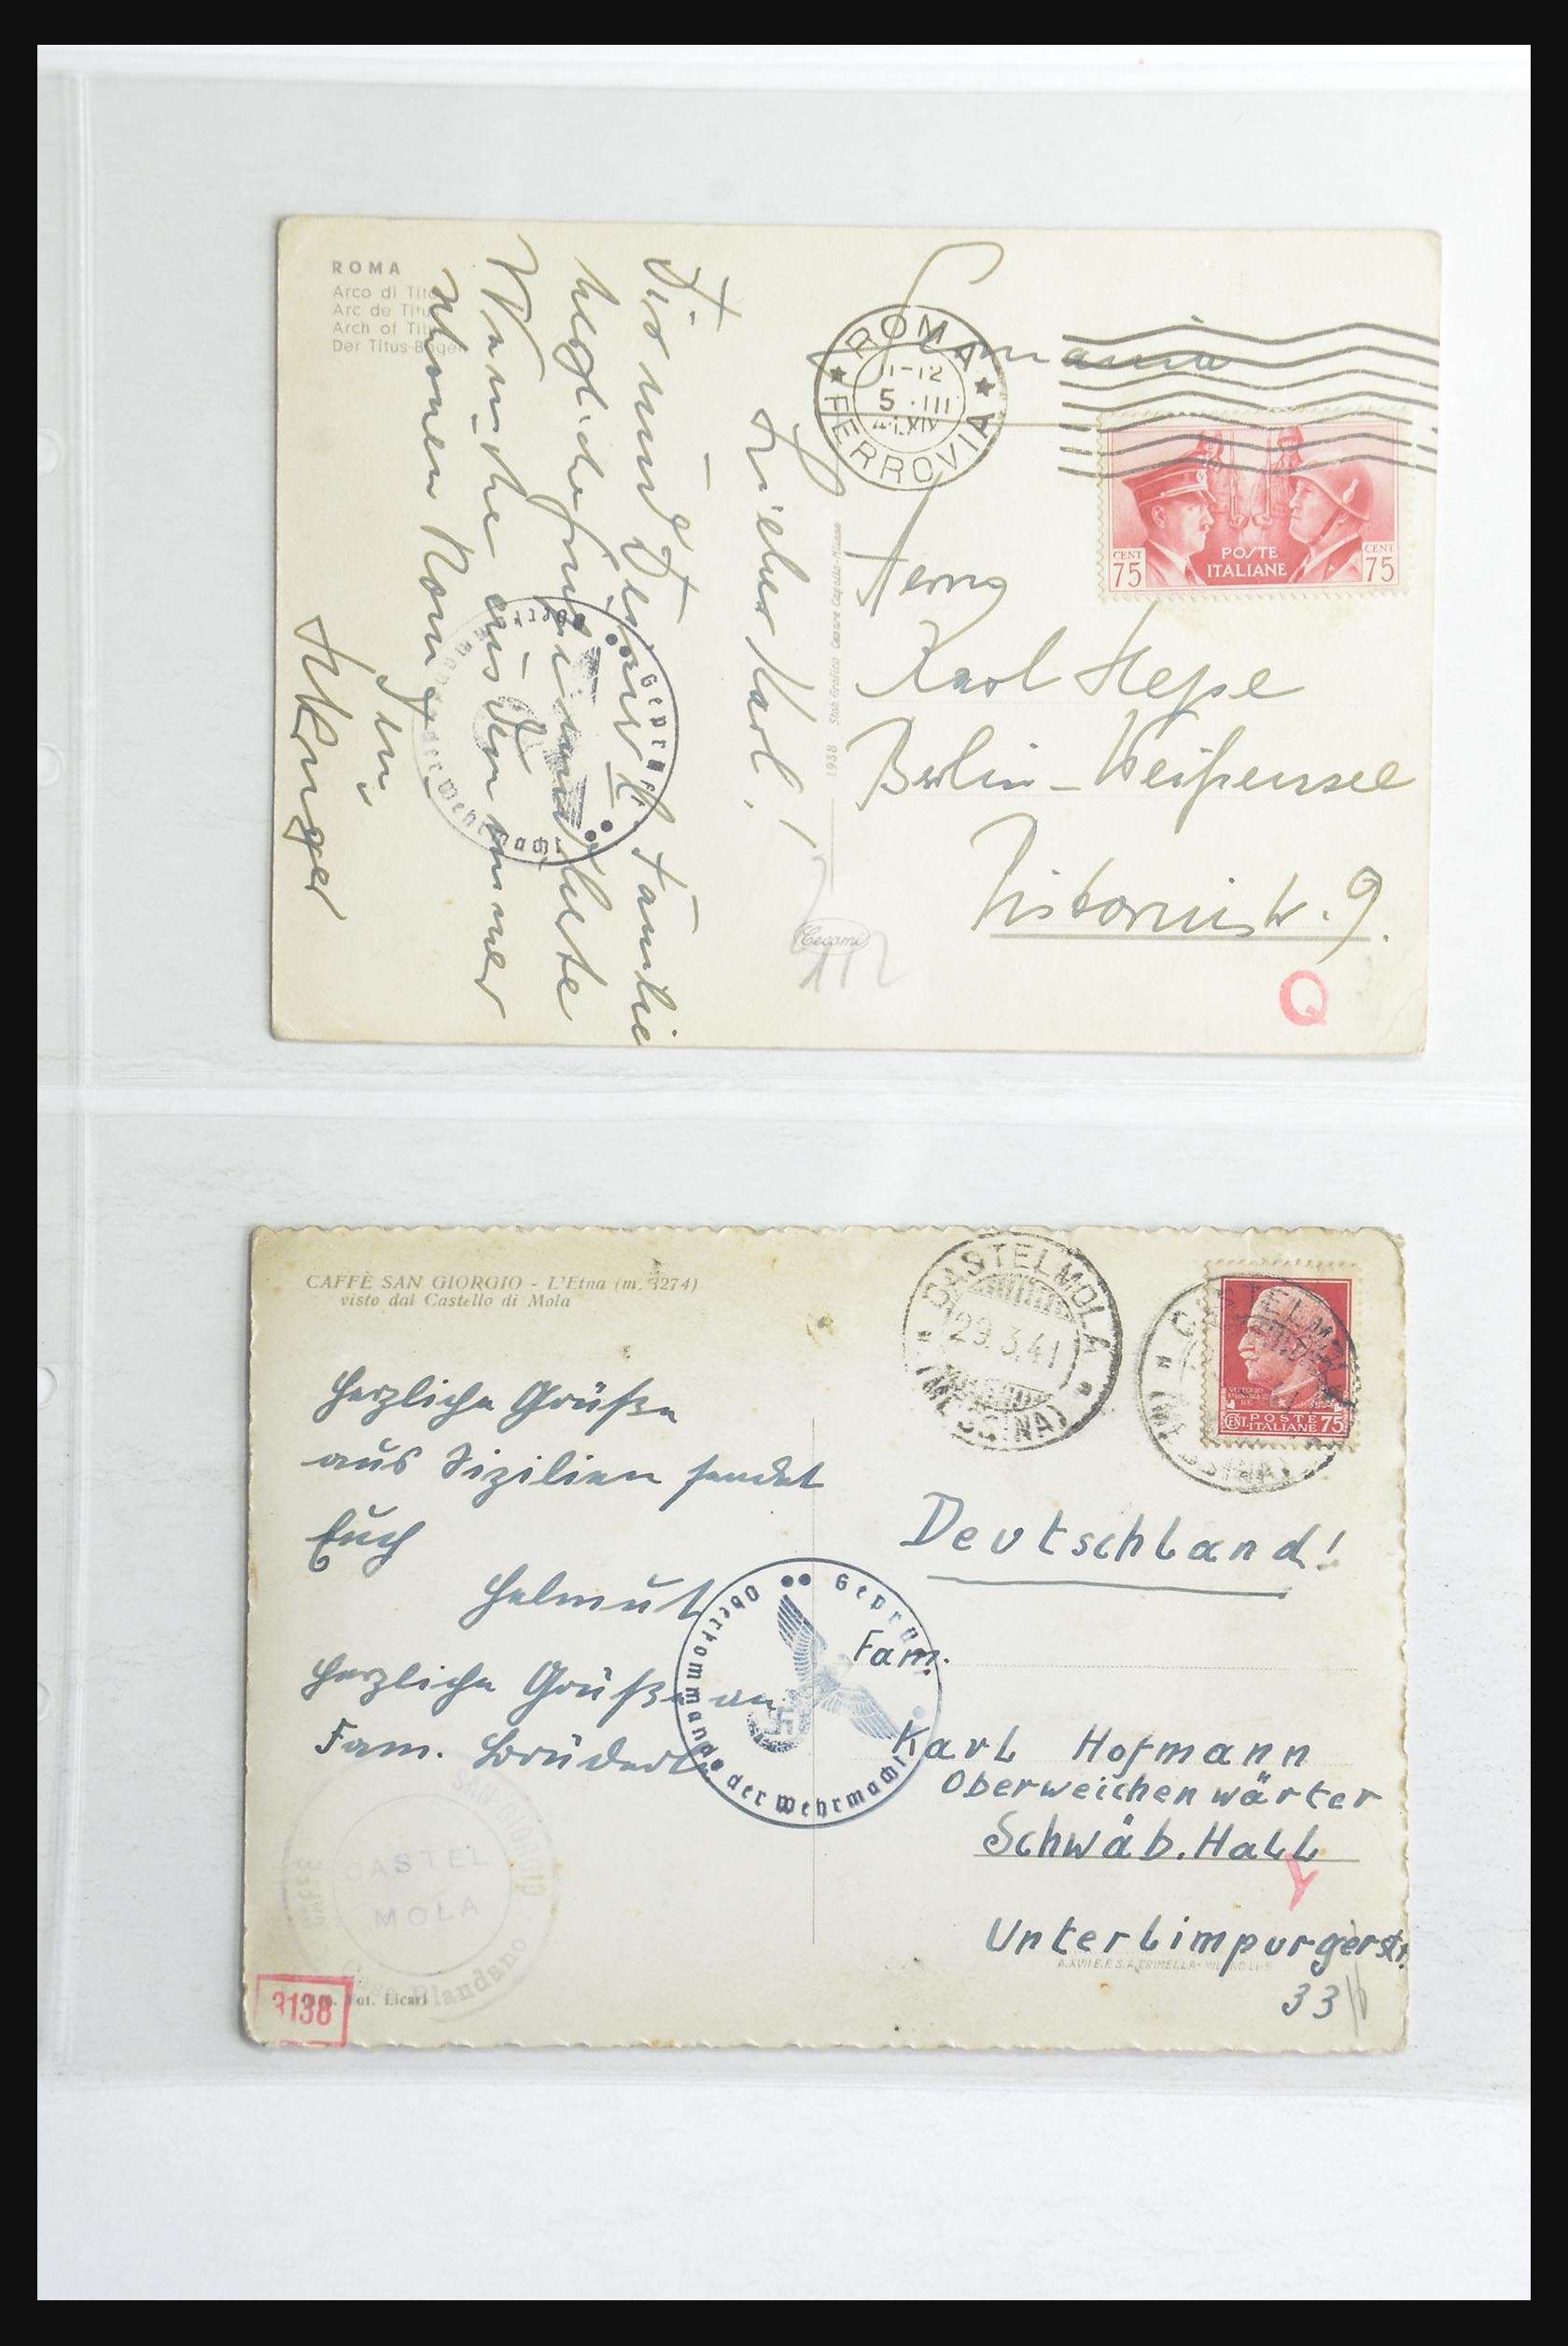 ROMA
Arco di Tito
Arc de Titus
Arch of Titus
Der Titus-Bogen
Germania
ROMA
11-12
5 · III
41.XIX
FERROVIA
CENT 75
POSTE
ITALIANE
CENT 75
Lieber Karl!
Dir und Deiner l. Familie
herzliche Grüße und Gute
Wünsche aus dem immer
schönen Rom
Geprüft
Oberkommando der Wehrmacht
Herrn
Karl Hepe
Berlin-Weißensee
9.
1938 Stab Grafico Cesare Capello-Milano
Cecami
Q
CAFFÈ SAN GIORGIO - L'Etna (m. 3274)
visto dal Castello di Mola
CASTELMOLA
29.3.41
(MESSINA)
CASTELMOLA
(MESSINA)
CENT. POSTE 75
ITALIANE
Herzliche Grüße
aus Sizilien sendet
Euch
Helmut
Herzliche Grüße an
Fam.
Deutschland!
Geprüft
Oberkommando der Wehrmacht
Fam.
Karl Hofmann
Oberweichenwärter
Schwäb. Hall
Y
Unterlimpurgerstr.
33
CAFFÈ SAN GIORGIO
CASTEL
MOLA
Blandano
3138
Fot. Licari
A. XVII E.F. S.A. CRIMELLA - MILANO